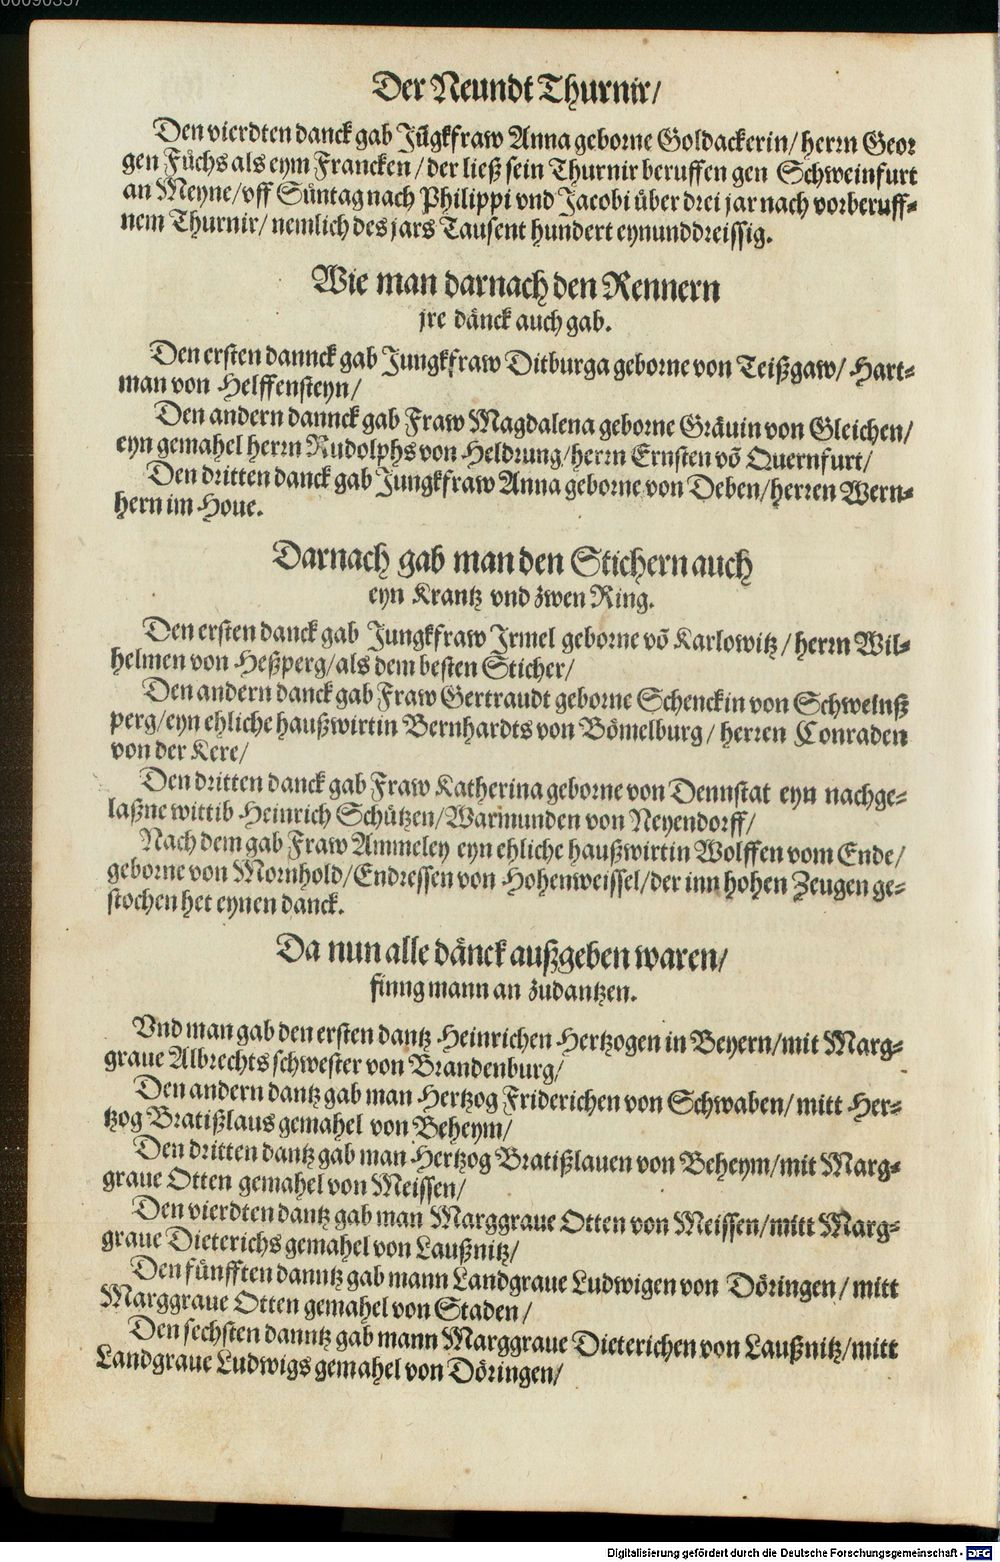 00090357
Der Neundt Thurnir/
Den vierdten danck gab Jūgkfraw Anna geborne Goldackerin/ herrn Geor
gen Füchs als eym Francken / der ließ sein Thurnir beruffen gen Schweinfurt
an Meyne/ vff Suntag nach Philippi vnd Jacobi über drei jar nach vorberuff-
nem Thurnir/ nemlich des jars Tausent hundert eynunddreissig.
Wie man darnach den Rennern
jre dänck auch gab.
Den ersten dannck gab Jungkfraw Ditburga geborne von Teißgaw/ Hart-
man von Helffensteyn/
Den andern dannck gab Fraw Magdalena geborne Gräuin von Gleichen/
eyn gemahel herrn Rudolphs von Heldrung/ herrn Ernsten vō Quernfurt/
Den dritten danck gab Jungkfraw Anna geborne von Deben/ herren Wern-
hern im Houe.
Darnach gab man den Stichern auch
eyn Krantz vnd zwen Ring.
Den ersten danck gab Jungkfraw Jrmel geborne vō Karlowitz / herrn Wil-
helmen von Heßperg/ als dem besten Sticher/
Den andern danck gab Fraw Gertraudt geborne Schenckin von Schwelnß
perg/ eyn ehliche haußwirtin Bernhardts von Bömelburg / herren Conraden
von der Kere/
Den dritten danck gab Fraw Katherina geborne von Dennstat eyn nachge-
laßne wittib Heinrich Schützen/ Warmunden von Neyendorff/
Nach dem gab Fraw Ammeley eyn ehliche haußwirtin Wolffen vom Ende/
geborne von Mornhold/ Endressen von Hohenweissel/ der inn hohen Zeugen ge-
stochen het eynen danck.
Da nun alle dänck außgeben waren/
finng mann an zudantzen.
Vnd man gab den ersten dantz Heinrichen Hertzogen in Beyern/ mit Marg-
graue Albrechts schwester von Brandenburg/
Den andern dantz gab man Hertzog Friderichen von Schwaben/ mitt Her-
tzog Bratißlaus gemahel von Beheym/
Den dritten dantz gab man Hertzog Bratißlauen von Beheym/ mit Marg-
graue Otten gemahel von Meissen/
Den vierdten dantz gab man Marggraue Otten von Meissen/ mitt Marg-
graue Dieterichs gemahel von Laußnitz/
Den fünfften danntz gab mann Landgraue Ludwigen von Döringen/ mitt
Marggraue Otten gemahel von Staden /
Den sechsten danntz gab mann Marggraue Dieterichen von Laußnitz/ mitt
Landgraue Ludwigs gemahel von Döringen/
Digitalisierung gefördert durch die Deutsche Forschungsgemeinschaft - DFG